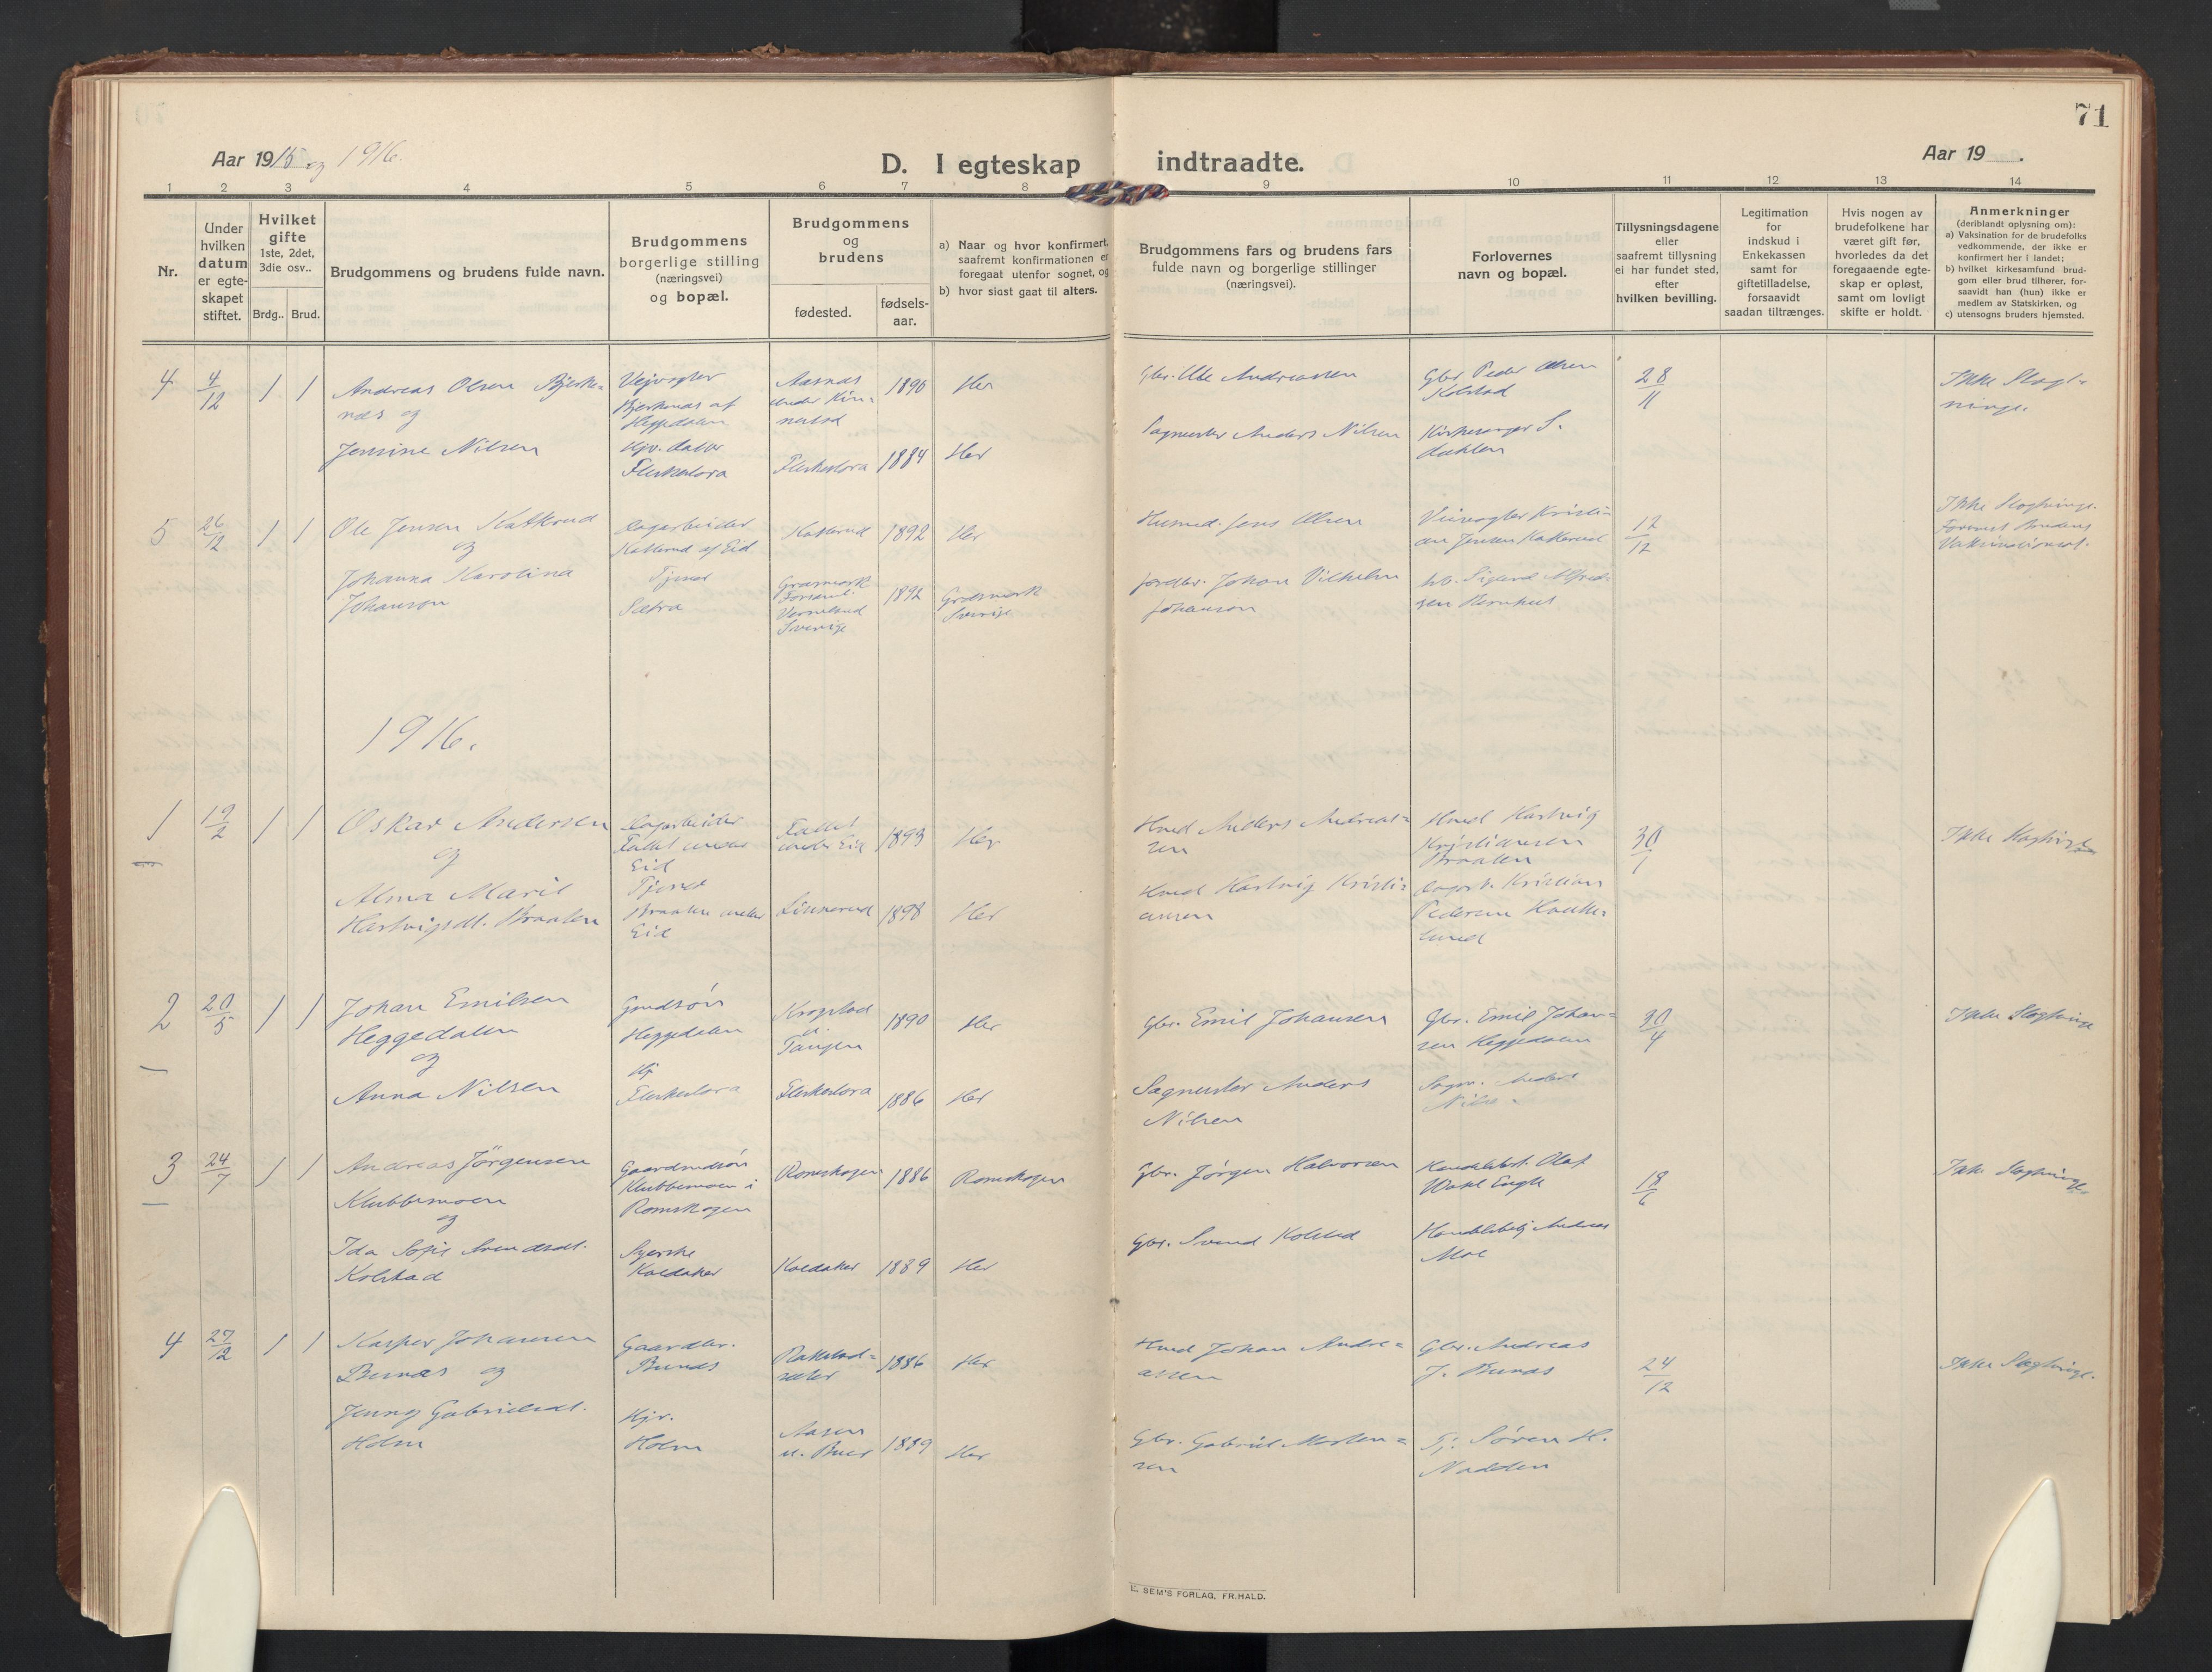 71
Aar 1915 og 1916.
D. I egteskap indtraadte.
Aar 19 .
1 2 3 4 5 6 7 8 9 10 11 12 13 14
Nr.
Under
hvilken
datum
er egte-
skapet
stiftet.
Hvilket
gifte
1ste, 2det,
3die osv..
Brdg.. Brud.
Brudgommens og brudens fulde navn.
Brudgommens
borgerlige stilling
(næringsvei)
og bopæl.
Brudgommens
og
brudens
fødested.
fødsels-
aar.
a) Naar og hvor konfirmert,
saafremt konfirmationen er
foregaat utenfor sognet, og
b) hvor sidst gaat til alters.
Brudgommens fars og brudens fars
fulde navn og borgerlige stillinger
(næringsvei).
Forlovernes
navn og bopæl.
Tillysningsdagene
eller
saafremt tillysning
ei har fundet sted,
efter
hvilken bevilling.
Legitimation
for
indskud i
Enkekassen
samt for
giftetilladelse,
forsaavidt
saadan tiltrænges.
Hvis nogen av
brudefolkene har
været gift før,
hvorledes da det
foregaaende egte-
skap er opløst,
samt om lovligt
skifte er holdt.
Anmerkninger
(deriblandt oplysning om):
a) Vaksination for de brudefolks
vedkommende, der ikke er
konfirmert her i landet;
b) hvilket kirkesamfund brud-
gom eller brud tilhører, for-
saavidt han (hun) ikke er
medlem av Statskirken, og
c) utensogns bruders hjemsted.
4
4/12
1 1
Andreas Olsen Bjerke=
næs og
Jensine Nilsen
Vejvogter
Bjerkenæs af
Heggedalen
Hjv. datter
Fleskerbora
Aasnæs
under Kin=
nestad
Fleskerbora
1890
1884
Her
Her
Gbr. Ole Andreassen
Sagmester Anders Nilsen
Gbr. Peder Olsen
Kolstad
Kirkesanger S.
Dahlen
28/11
Ikke Slægt=
ninge.
5
26/12
1 1
Ole Jensen Katkerud
og
Johanna Karolina
Johanson
Dagarbeider
Katterud af Eid
Tjener
Sætra
Katterud
Græsmark
Forsaml.
Vermeland
Sverige
1892
1892
Her
Græsmark
Sverige
Husmd. Jens Olsen
Jordbr. Johan Vilhelm
Johanson
Veivogter Kristi=
an Jensen Katkerud
Sigurd Alfred=
sen
12/12
Ikke Slegtninge.
Forevist Brudens
Vaksinationsat.
1916.
1
19/2
1 1
Oskar Andersen
og
Alma Marie
Hartvigsdt. Braaten
Dagarbeider
Fallet under
Eid
Tjener
Braaten under
Eid
Fallet
under Eid
Linnerud
1893
1898
Her
Her
Hmd Anders Andreas=
sen
Hmd Hartvig Kristi=
ansen
Hmd Hartvig
Kristiansen
Braaten
Dagarb. Kristian
Pedersen
30/1
Ikke Slegtninge
2
20/5
1 1
Johan Emilsen
Heggedalen
og
Anna Nilsen
Gmdsøn
Heggedalen
Hj
Fleskerbora
Kropstad
u.
Tangen
Fleskerbora
1890
1886
Her
Her
Gbr. Emil Johansen
Sagmester Anders
Nilsen
Gbr. Emil Johan=
sen Heggedalen
Sagm. Anders
Nilsen
30/4
Ikke Slegtninge
3
24/7
1 1
Andreas Jørgensen
Klubbemoen
og
Ida Sofie Svendsdt.
Kolstad
Gaardmdsøn
Klubbemoen i
Romskogen
Syerske
Kaldaker
Romskogen
Kaldaker
1886
1889
Romskogen
Her
Gbr. Jørgen Halvorsen
Gbr. Svend Kolstad
Handelsbest. Olaf
Handelsbetj Andreas
Moe
18/6
Ikke Slegtninge
4
27/12
1 1
Kasper Johansen
Bunæs og
Jenny Gabrielsdt.
Holm
Gaardbr.
Bunæs
Hjv.
Holm
Rakkestad=
sæter
Aasen
u. Buer
1886
1889
Her
Her
Hmd Johan Andre=
assen
Gbr. Gabriel Morten=
sen
Gbr. Andreas
J. Bunæs
Tj. Søren H.
Nadden
24/12
Ikke Slegtninge.
E. SEM'S FORLAG, FR.HALD.